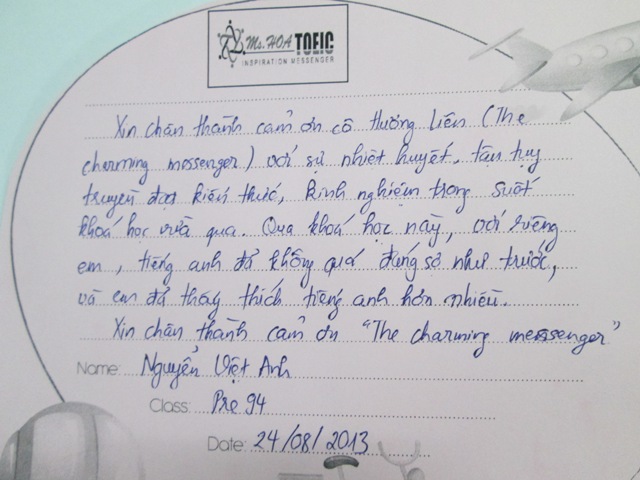 Ms. HOA TOEIC
INSPIRATION MESSENGER
Xin chân thành cảm ơn cô Hương Liên (The
charming messenger) với sự nhiệt huyết, tận tụy
truyền đạt kiến thức, kinh nghiệm trong suốt
khoá học vừa qua. Qua khoá học này, với riêng
em, tiếng anh đã không quá đáng sợ như trước,
và em đã thấy thích tiếng anh hơn nhiều.
Xin chân thành cảm ơn "The charming messenger"
Name: Nguyễn Việt Anh
Class: Pre 94
Date: 24/08/2013